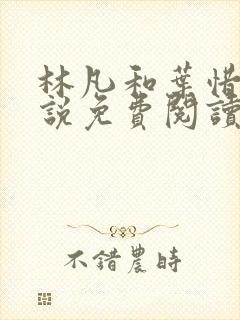 林凡和葉惜
說免費閱讀
不錯農時